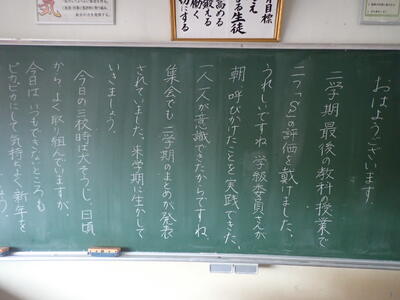 おはようございます。
二学期 最後の教科の授業で
二つ「S」の評価を戴けました。
うれしいですね。学級委員さんが
朝、呼びかけたことを実践できた、
一人一人が意識できたからですね。
集会でも 二学期のまとめが発表
されていました。来学期に生かして
いきましょう。
今日の三校時は大そうじ。日頃
から、よく取り組んでいますが、
今日は いつもできないところも
ピカピカにして 気持ちよく新年を
目標